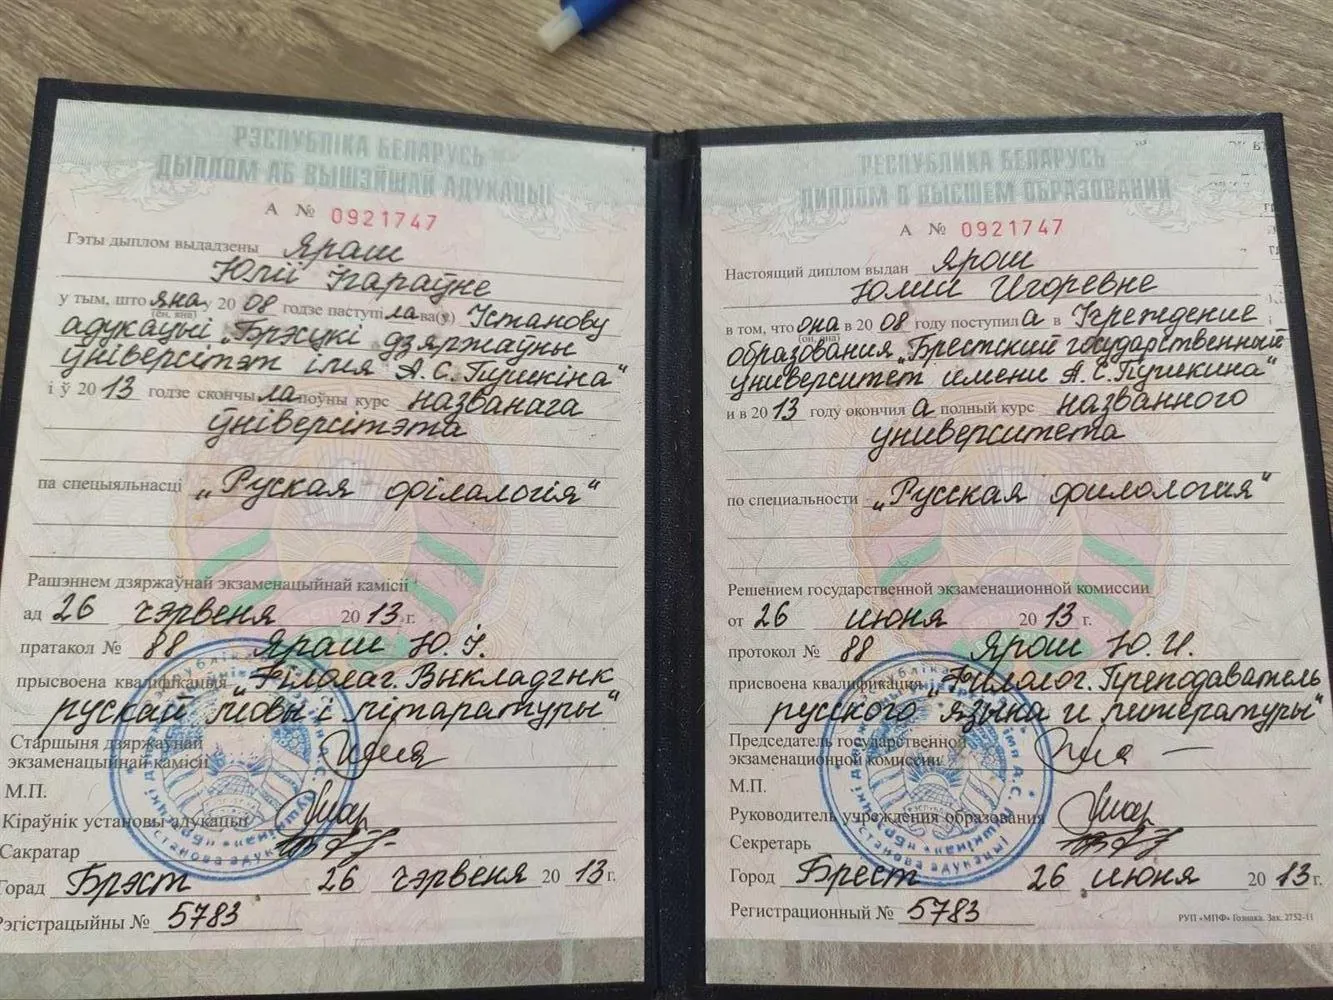 РЭСПУБЛІКА БЕЛАРУСЬ
ДЫПЛОМ АБ ВЫШЭЙШАЙ АДУКАЦЫІ
А № 0921747
Гэты дыплом выдадзены Ярош
Юліі Ігараўне
у тым, што яна у 2008 годзе паступіла ва(ў) Установу
(ён, яна)
адукацыі „Брэсцкі дзяржаўны
ўніверсітэт імя А.С.Пушкіна"
і ў 2013 годзе скончыла поўны курс названага
ўніверсітэта
па спецыяльнасці „Руская філалогія"
Рашэннем дзяржаўнай экзаменацыйнай камісіі
ад 26 чэрвеня 2013 г.
пратакол № 88 Ярош Ю.І.
прысвоена кваліфікацыя „Філолаг. Выкладчык
рускай мовы і літаратуры"
Старшыня дзяржаўнай
экзаменацыйнай камісіі
М.П.
Кіраўнік установы адукацыі
Сакратар
Горад Брэст 26 чэрвеня 2013 г.
Рэгістрацыйны № 5783
РЕСПУБЛИКА БЕЛАРУСЬ
ДИПЛОМ О ВЫСШЕМ ОБРАЗОВАНИИ
А № 0921747
Настоящий диплом выдан Ярош
Юлии Игоревне
в том, что она в 2008 году поступила в Учреждение
(он, она)
образования „Брестский государственный
университет имени А.С.Пушкина"
и в 2013 году окончила полный курс названного
университета
по специальности „Русская филология"
Решением государственной экзаменационной комиссии
от 26 июня 2013 г.
протокол № 88 Ярош Ю.И.
присвоена квалификация „Филолог. Преподаватель
русского языка и литературы"
Председатель государственной
экзаменационной комиссии
М.П.
Руководитель учреждения образования
Секретарь
Город Брест 26 июня 2013 г.
Регистрационный № 5783
РУП «МПФ» Гознака. Зак. 2752-11